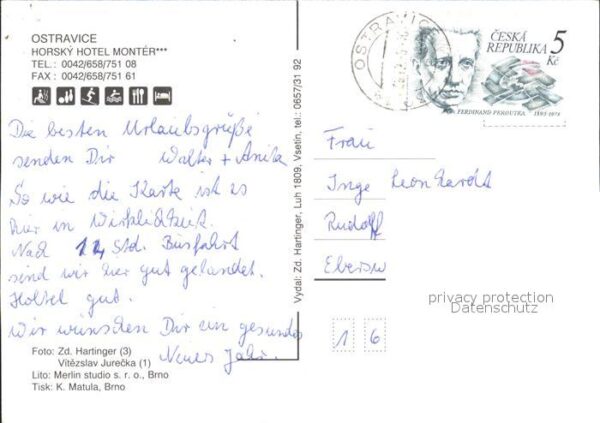 OSTRAVICE
HORSKÝ HOTEL MONTÉR***
TEL.: 0042/658/751 08
FAX : 0042/658/751 61
Die besten Urlaubsgrüße
senden Dir Walter + Anita
So wie die Karte ist es
hier in Wirklichkeit.
Nach 14 Std. Busfahrt
sind wir hier gut gelandet.
Hotel gut.
Wir wünschen Dir ein gesundes
Neues Jahr.
Foto: Zd. Hartinger (3)
Vítězslav Jurečka (1)
Lito: Merlin studio s. r. o., Brno
Tisk: K. Matula, Brno
Vydal: Zd. Hartinger, Luh 1809, Vsetín, tel.: 0657/31 92
OSTRAVICE
ČESKÁ
REPUBLIKA
5
Kč
FERDINAND PEROUTKA 1895-1978
Frau
Inge Leonhardt
Rudolf
Ebersu
privacy protection
Datenschutz
1 6